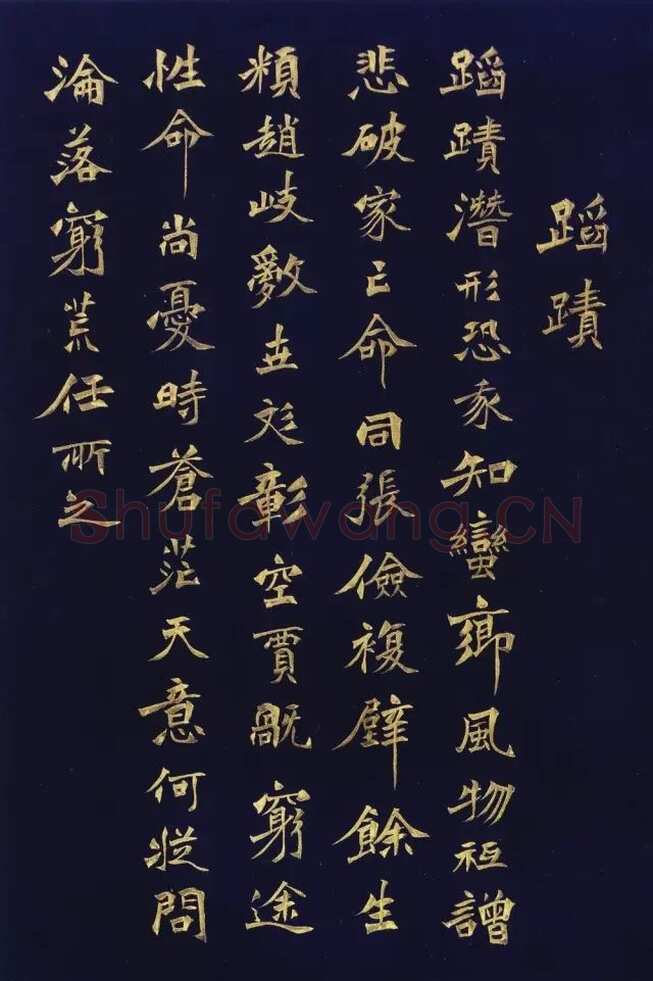 蹈蹟
蹈蹟潛形恐豕知蠻鄉風物祗譄
悲破家亡命同張儉複壁餘生
類趙岐數世彣彰空賈旤窮途
性命尚憂時蒼茫天意何從問
淪落窮荒任所之
Shufawang.CN